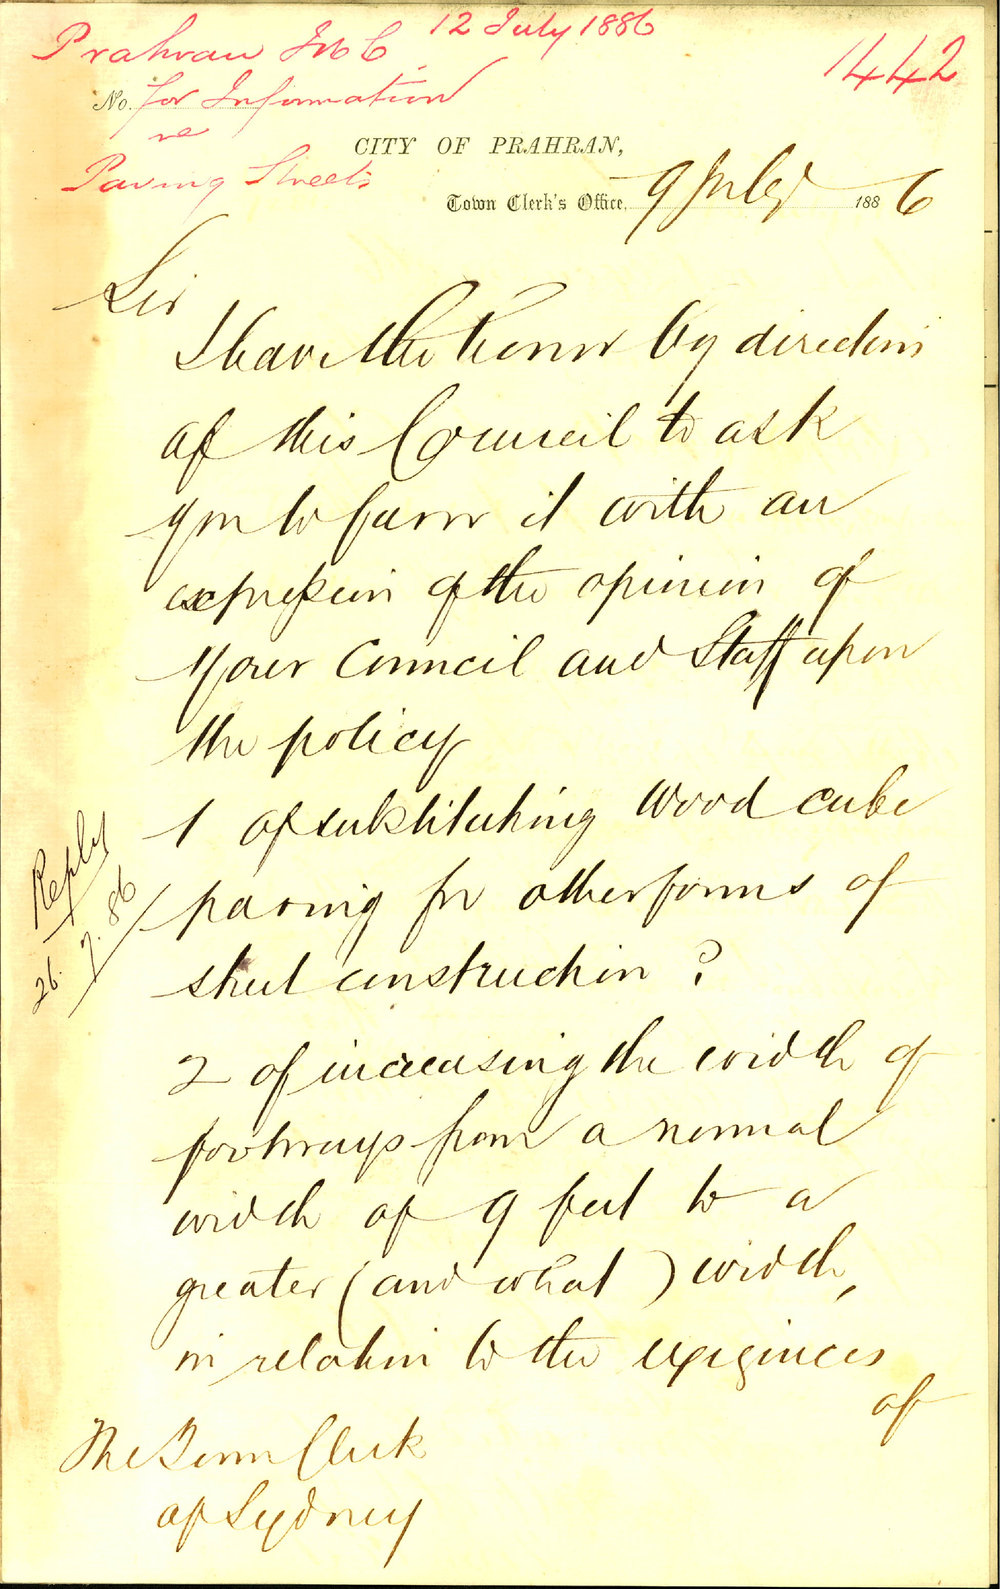 12 July 1886
Prahran M C
1442
No. for Information
re
Paving Streets
CITY OF PRAHRAN,
Town Clerk's Office, 9 July 1886
Sir
I have the honor by direction
of this Council to ask
you to favor it with an
expression of the opinion of
your Council and Staff upon
the policy
1 of substituting wood cube
paving for other forms of
street construction ?
2 of increasing the width of
footways from a normal
width of 9 feet to a
greater (and what) width,
in relation to the exigencies
of
Reply
26.7.86
The Town Clerk
of Sydney